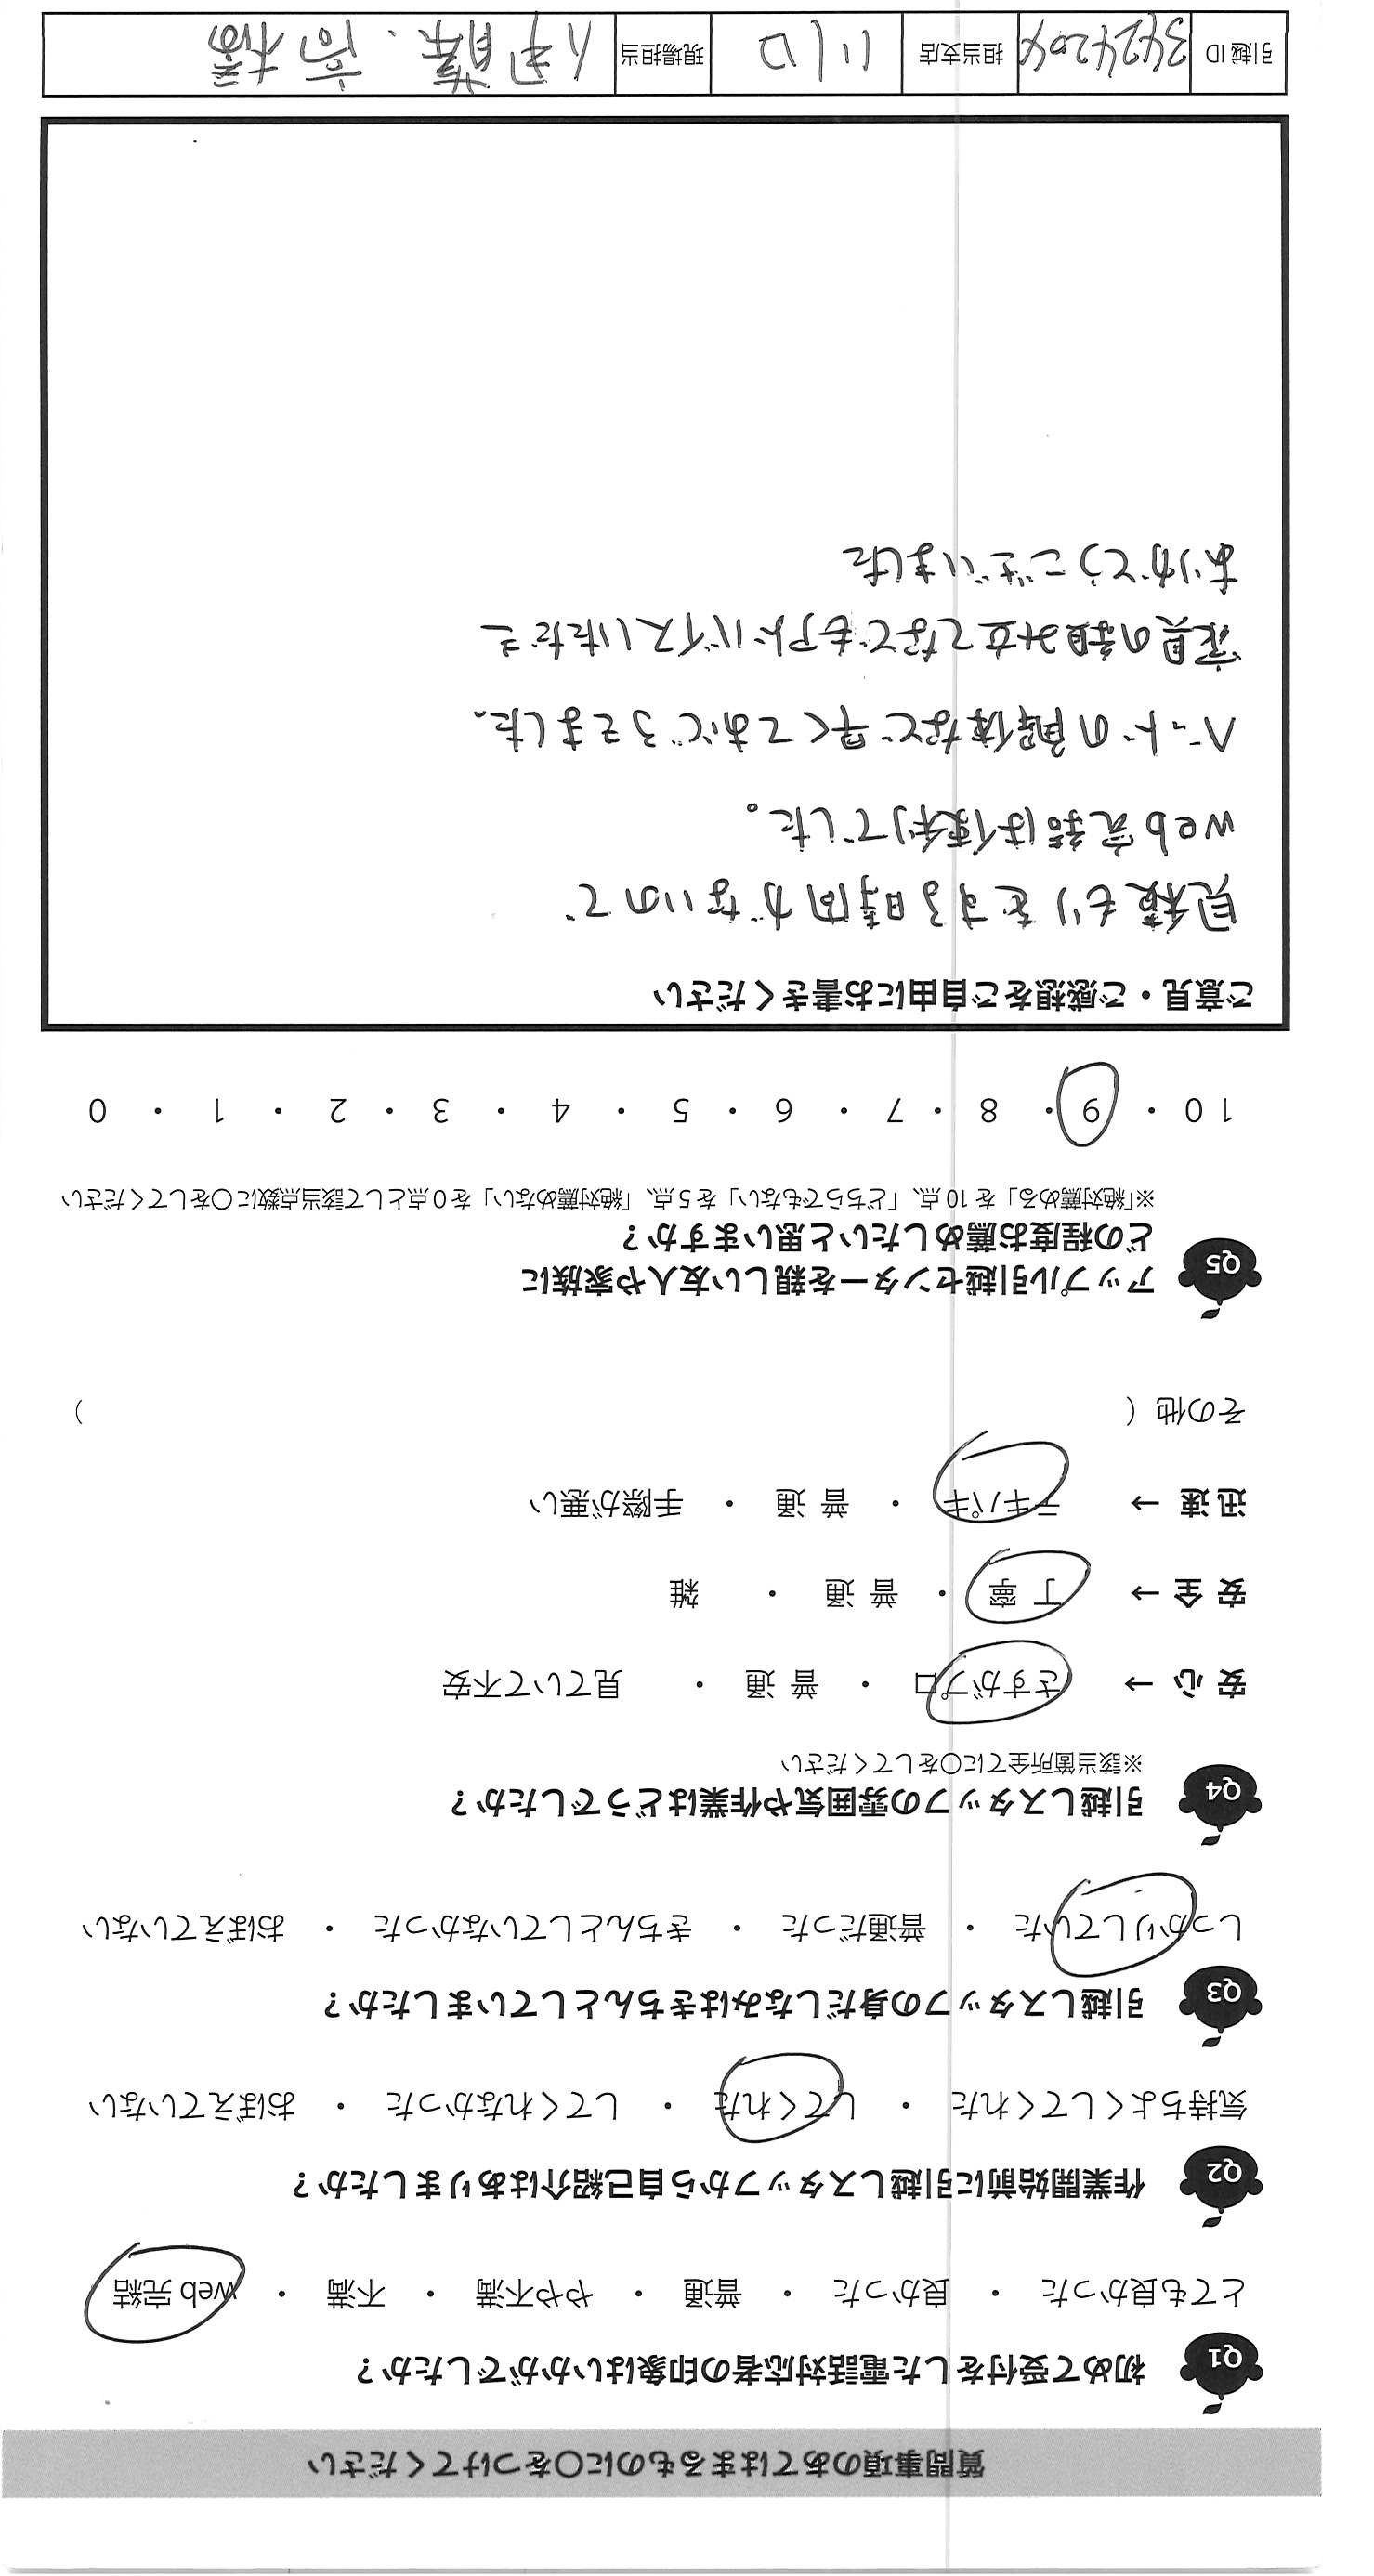 質問事項のあてはまるものに〇をつけてください
Q1 初めて受付をした電話対応者の印象はいかがでしたか？
とても良かった ・ 良かった ・ 普通 ・ やや不満 ・ 不満 ・ web 完結
Q2 作業開始前に引越しスタッフから自己紹介はありましたか？
気持ちよくしてくれた ・ してくれた ・ してくれなかった ・ おぼえていない
Q3 引越しスタッフの身だしなみはきちんとしていましたか？
しっかりしていた ・ 普通だった ・ きちんとしていなかった ・ おぼえていない
Q4 引越しスタッフの雰囲気や作業はどうでしたか？
※該当箇所全てに〇をしてください
安心 → さすがプロ ・ 普通 ・ 見ていて不安
安全 → 丁寧 ・ 普通 ・ 雑
迅速 → テキパキ ・ 普通 ・ 手際が悪い
その他（ ）
Q5 アップル引越センターを親しい友人や家族に
どの程度お薦めしたいと思いますか？
※「絶対薦める」を 10 点、「どちらでもない」を 5 点、「絶対薦めない」を 0 点として該当点数に〇をしてください
10 ・ 9 ・ 8 ・ 7 ・ 6 ・ 5 ・ 4 ・ 3 ・ 2 ・ 1 ・ 0
ご意見・ご感想をご自由にお書きください
見積もりをする時間がないので、
web完結は便利でした。
ベッドの解体など早くておどろきました。
家具の組み立てなどもアドバイスいただき
ありがとうございました
引越 ID 3424204 担当支店 川口 現場担当 高橋